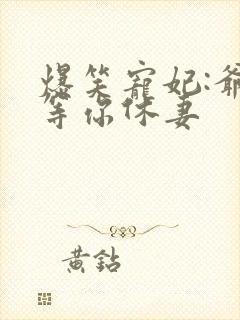 爆笑寵妃:爺
等你休妻
黃鉆